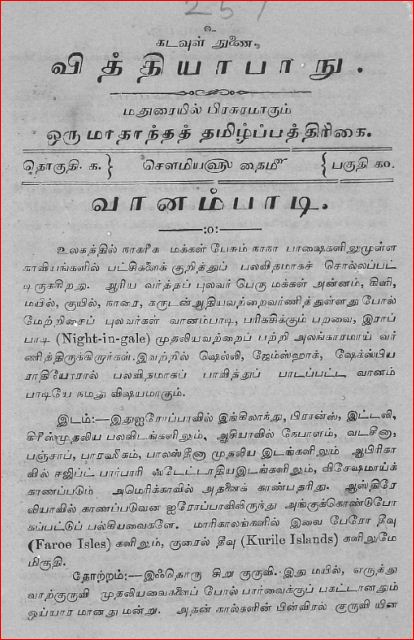 257
உ
கடவுள் துணை,
வித்தியாபாநு.
மதுரையில் பிரசுரமாகும்
ஒரு மாதாந்தத் தமிழ்ப்பத்திரிகை.
தொகுதி. க.} சௌமியவரு தைமீ {பகுதி க௦.
வானம்பாடி.
:o:
உலகத்தில் நாகரீக மக்கள் பேசும் நாநா பாஷைகளிலுமுள்ள
காவியங்களில் பட்சிகளைக் குறித்துப் பலவிதமாகச் சொல்லப்பட்
டிருக்கிறது. ஆரிய வர்த்தப் புலவர் பெரு மக்கள் அன்னம், கிளி,
மயில், குயில், நாரை, கருடன் ஆதியவற்றைவர்ணித்துள்ளது போல்
மேற்றிசைப் புலவர்கள் வானம்பாடி, பரிகசிக்கும் பறவை, இராப்
பாடி (Night-in-gale) முதலியவற்றைப் பற்றி அலங்காரமாய் வர்
ணித்திருக்கிறார்கள். இவற்றில் ஷெல்லி, ஜேம்ஸ்ஹாக், ஷேக்ஸ்பிய
ராதியோரால் பலவிதமாகப் பாவித்துப் பாடப்பட்ட வானம்
பாடியே நமது விஷயமாகும்.
இடம்:—இதுஐரோப்பாவில் இங்கிலாந்து, பிரான்ஸ், இட்டலி,
கிரீஸ்முதலிய பலவிடங்களிலும், ஆசியாவில் நேபாளம், வடசீனா,
பஞ்சாப், பாரஸீகம், பாலஸ்தீனா முதலிய இடங்களிலும் ஆபிரிகா
வில் ஈஜிப்ட் பார்பாரி ஸ்டேட்டாதியஇடங்களிலும், விசேஷமாய்க்
காணப்படும் அமெரிக்காவில் அதனைக் காண்பதரிது. ஆஸ்திரே
லியாவில் காணப்படுவன ஐரோப்பாவிலிருந்து அங்குக்கொண்டுபோ
கப்பட்டுப் பல்கியவைகளே. மாரிகாலங்களில் இவை பேரோ தீவு
(Faroe Isles) களினும், குரைல் தீவு (Kurile Islands) களினுமே
மிகுதி.
தோற்றம்:—இஃதொரு சிறு குருவி. இது மயில், எருத்து
வாற்குருவி முதலியவைகளைப் போல் பார்வைக்குப் பகட்டானதும்
ஒய்யார மானது மன்று. அதன் கால்களின் பின்விரல் குருவி யின